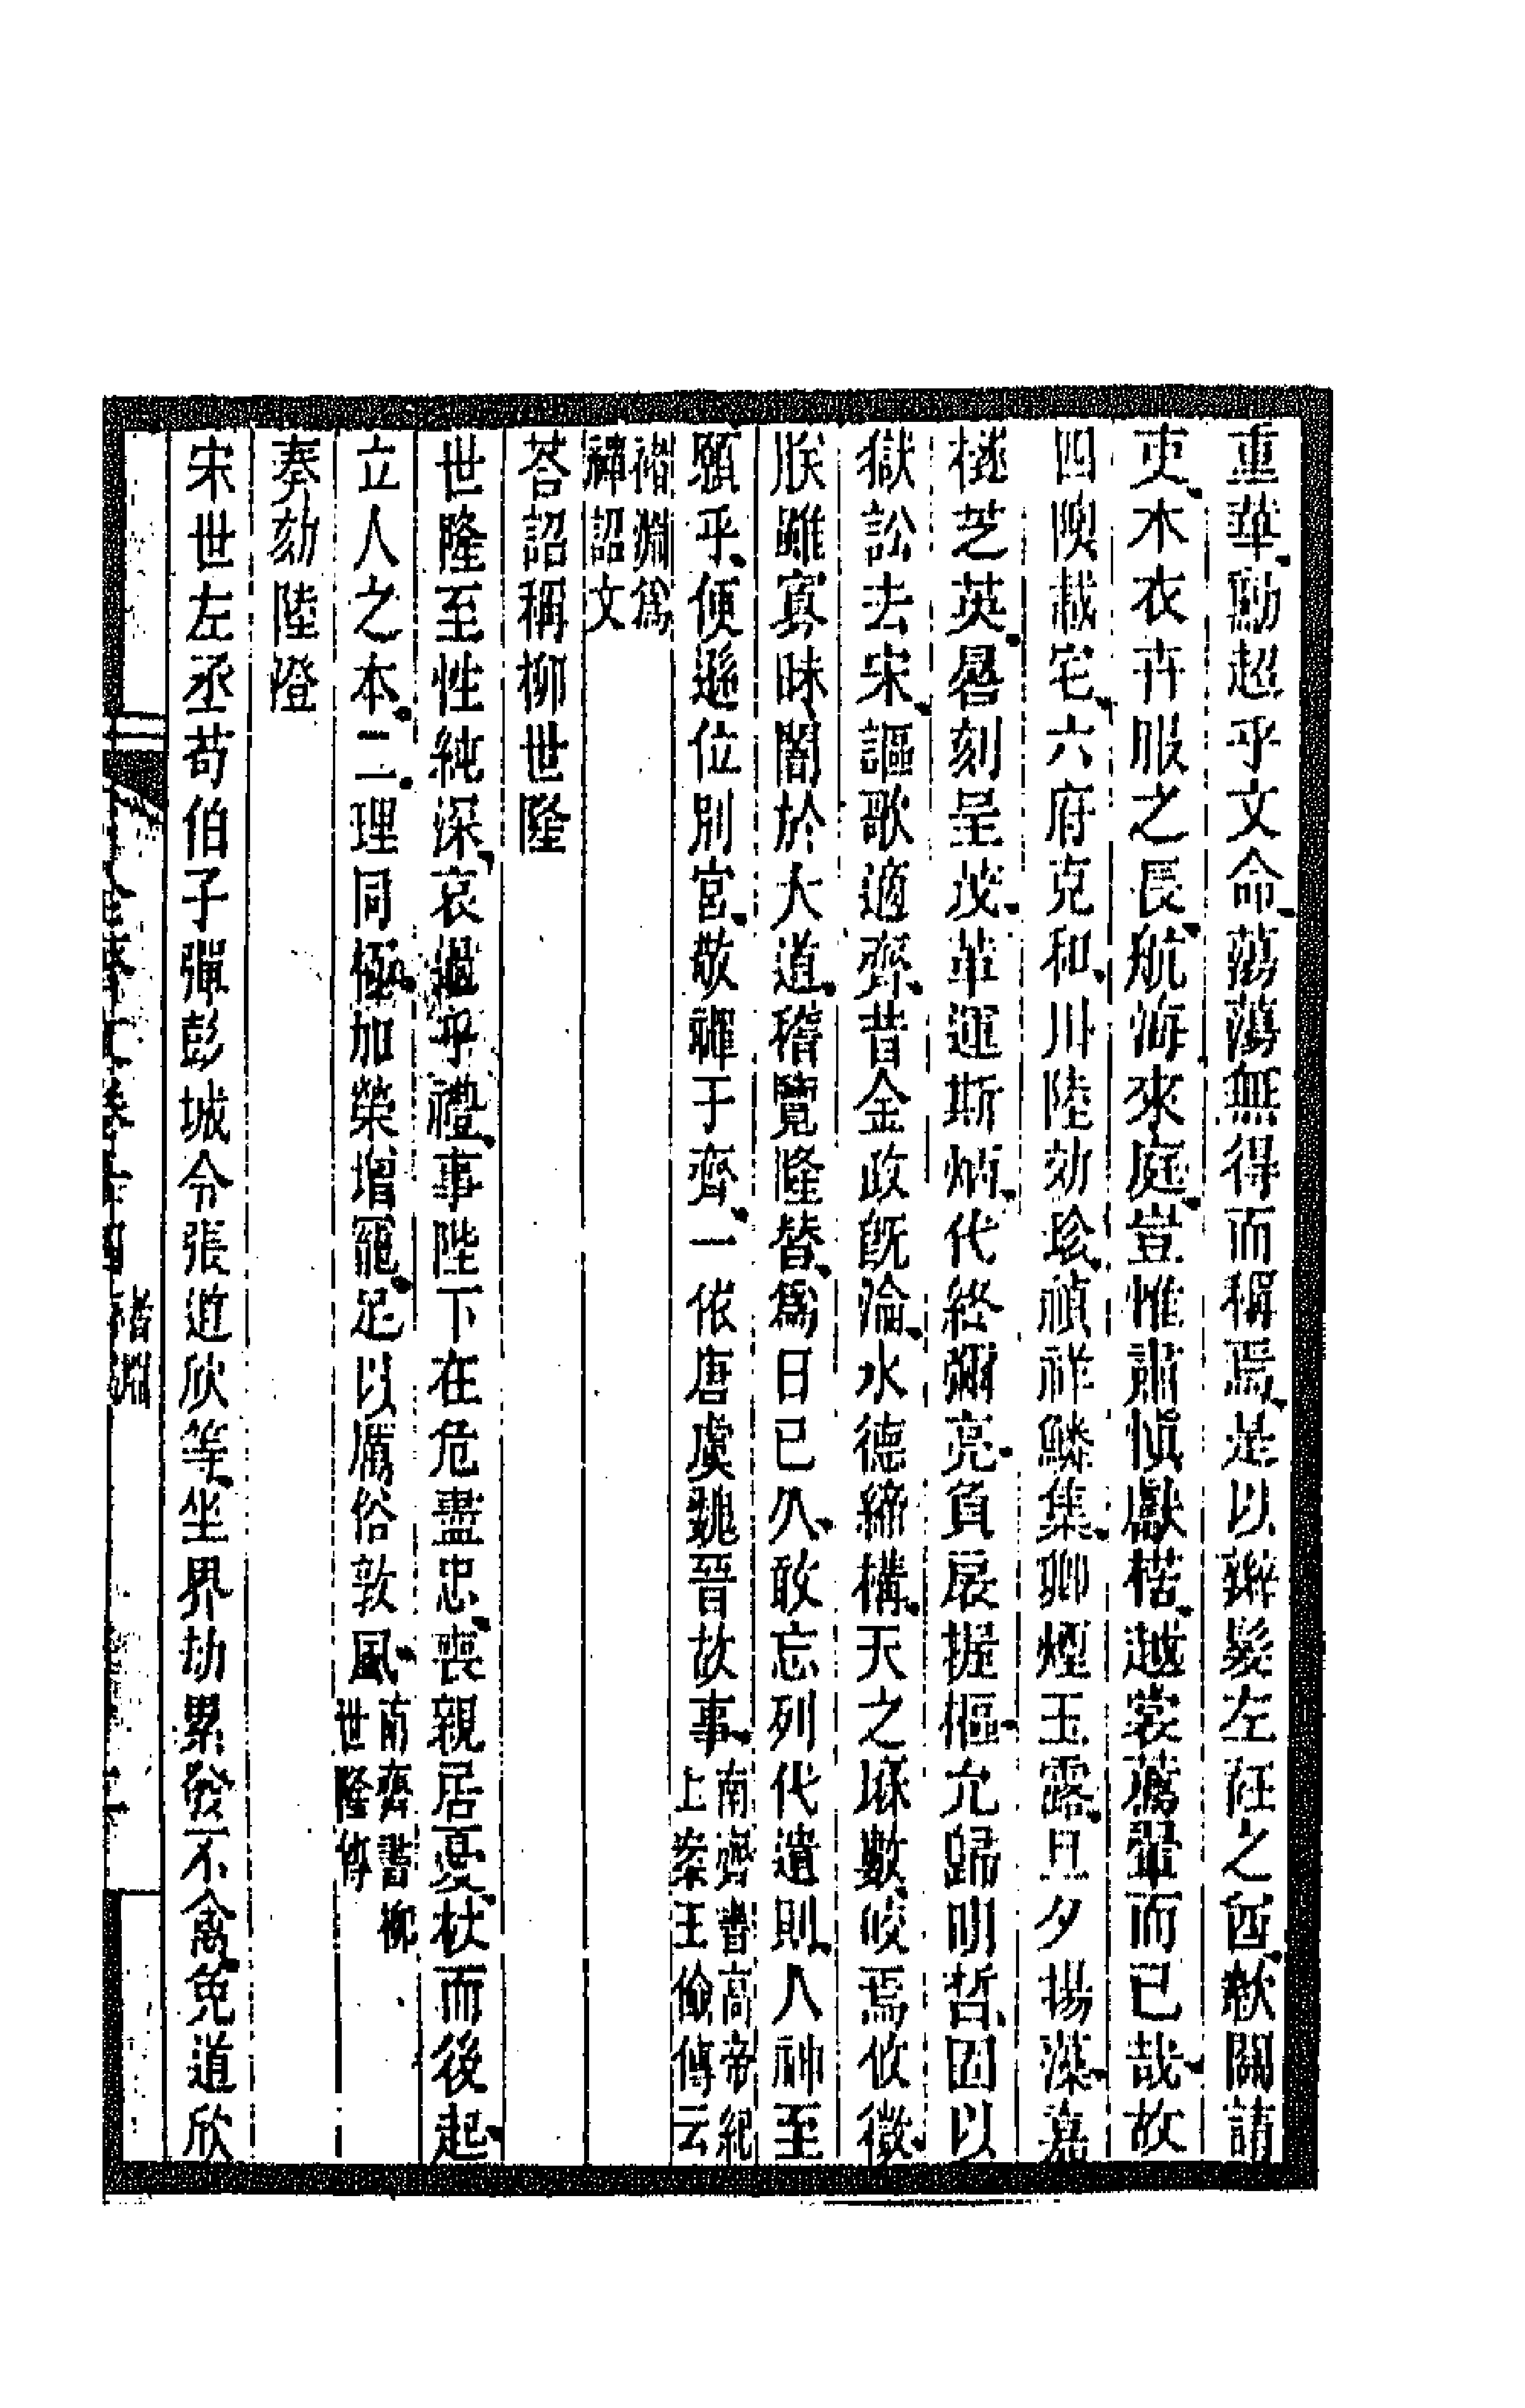 重華勳超乎文命蕩蕩無得而稱焉是以辮髮左衽之酋款關請
吏木衣卉服之長航海來庭豈惟肅愼獻楛越裳薦翬而已哉故
四隩載宅六府克和川陸効珍禎祥鱗集卿煙玉露旦夕揚藻嘉
穟芝英晷刻呈茂革運斯炳代終彌亮負扆握樞允歸明哲固以
獄訟去宋謳歌適齊昔金政旣淪水德締構天之厤數皎焉攸徵
朕雖寡昧闇於大道稽覽隆替爲日已久敢忘列代遺則人神至
願乎便遜位別宮敬禪于齊一依唐虞魏晉故事南齊書高帝紀
上案王儉傳云
褚淵爲
禪詔文
荅詔稱柳世隆
世隆至性純深哀過乎禮事陛下在危盡忠喪親居憂杖而後起
立人之本二理同極加榮增寵足以厲俗敦風南齊書柳
世隆傳
奏劾陸澄
宋世左丞荀伯子彈彭城令張道欣等坐界劫累發不禽免道欣
全齊文卷十四
褚淵